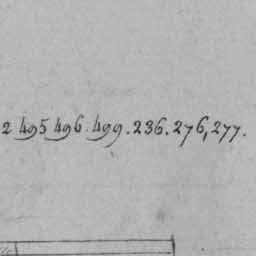 2 495 496. 499. 236. 276, 277.